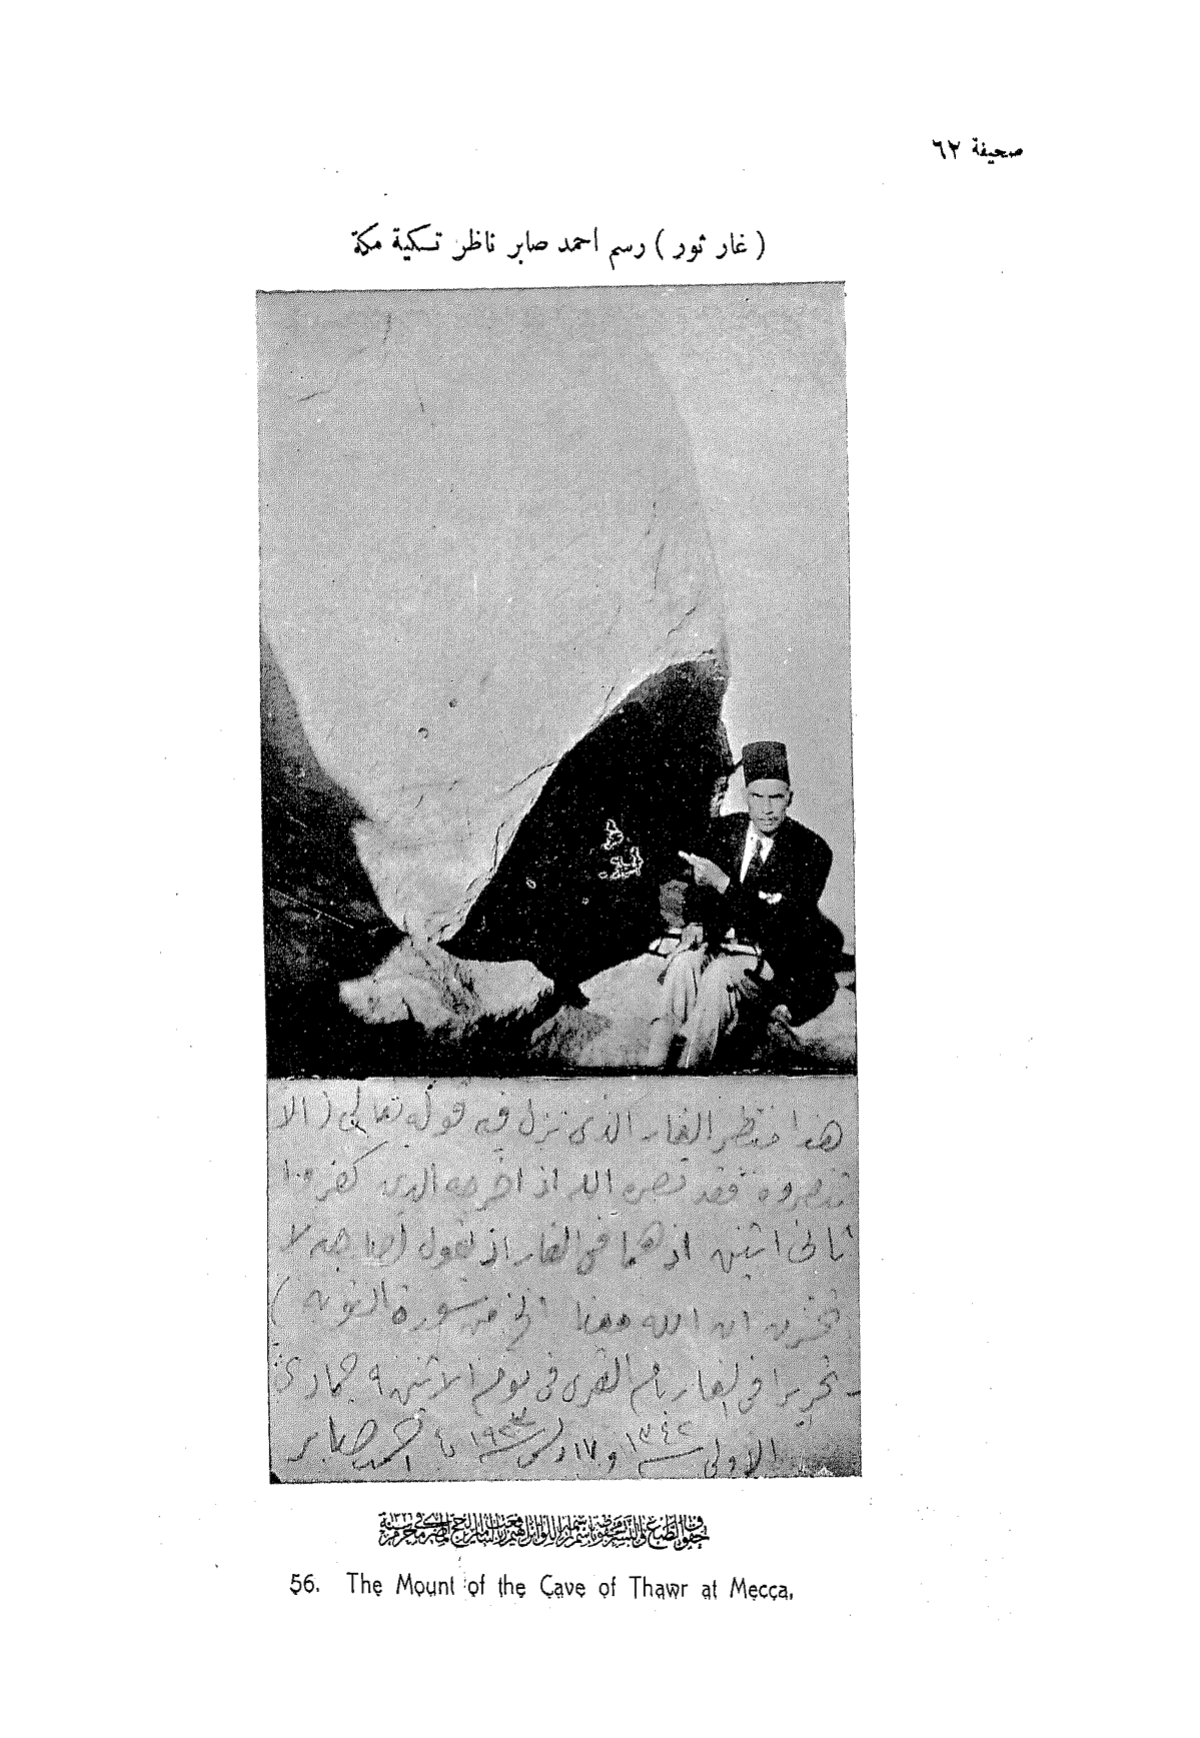 صحيفة ٦٢
( غار ثور ) رسم احمد صابر ناظر تكية مكة
هذا منظر الغار الذى نزل فيه قوله تعالى ( الا
تنصروه فقد نصره الله اذ اخرجه الذين كفروا
ثانى اثنين اذ هما فى الغار اذ يقول لصاحبه لا
تحزن ان الله معنا الخ من سورة التوبة )
تحريرا فى الغار بام القرى فى يوم الاثنين ٩ جمادى
الاولى ١٣٤٢ و ١٧ ١٩٢٣ احمد صابر
56. The Mount of the Cave of Thawr at Mecca.